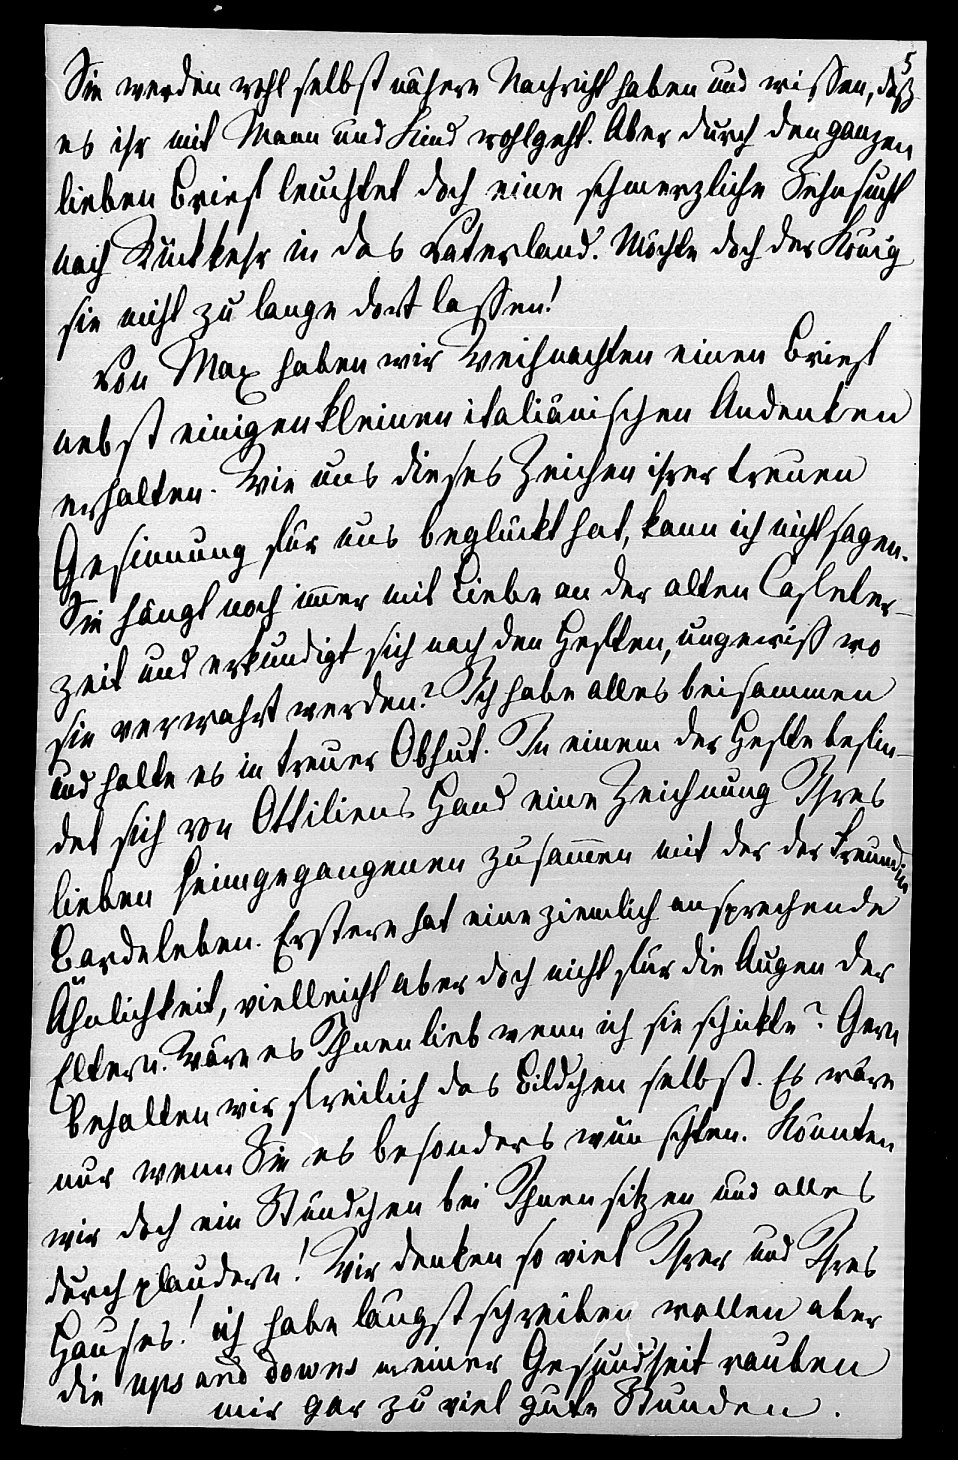 5
Sie werden wohl selbst nähere Nachricht haben und wissen, daß
es ihr mit Mann und Kind wohlgeht. Aber durch den ganzen
lieben Brief leuchtet doch eine schmerzliche Sehnsucht
nach Rückkehr in das Vaterland. Möchte doch der König
sie nicht zu lange dort lassen!
Von Max haben wir Weihnachten einen Brief
nebst einigen kleinen italiänischen Andenken
erhalten. Wie uns dieses Zeichen ihrer treuen
Gesinnung für uns beglückt hat, kann ich nicht sagen.
Sie hängt noch immer mit Liebe an der alten Casseler-
zeit und erkundigt sich nach den Heften, ungewiss wo
sie verwahrt werden? Ich habe alles beisammen
und halte es in treuer Obhut. In einem der Hefte befin-
det sich von Ottiliens Hand eine Zeichnung Ihres
lieben heimgegangenen zusammen mit der der Freundin
Bardeleben. Erstere hat eine ziemlich ansprechende
Ähnlichkeit, vielleicht aber doch nicht für die Augen der
Eltern. Wäre es Ihnen lieb wenn ich sie schickte? Gern
behalten wir freilich das Bildchen selbst. Es wäre
nur wenn Sie es besonders wünschten. Könnten
wir doch ein Stündchen bei Ihnen sitzen und alles
durchplaudern! Wir denken so viel Ihrer und Ihres
Hauses! ich habe längst schreiben wollen aber
die ups and downs meiner Gesundheit rauben
mir gar zu viel gute Stunden.